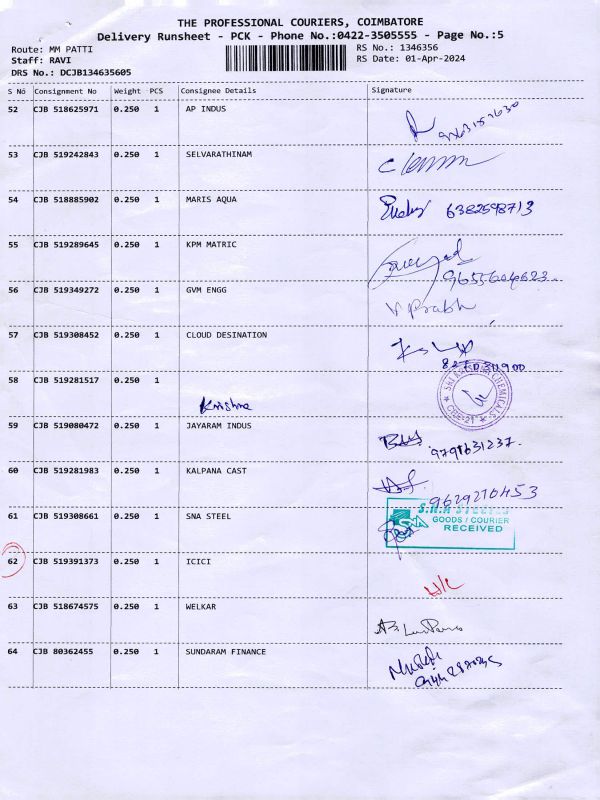 THE PROFESSIONAL COURIERS, COIMBATORE
Delivery Runsheet - PCK - Phone No.:0422-3505555 - Page No.:5
Route: MM PATTI
RS No.: 1346356
Staff: RAVI
RS Date: 01-Apr-2024
DRS No.: DCJB134635605
S No Consignment No Weight PCS Consignee Details Signature
52 CJB 518625971 0.250 1 AP INDUS
53 CJB 519242843 0.250 1 SELVARATHINAM
54 CJB 518885902 0.250 1 MARIS AQUA
6382598713
55 CJB 519289645 0.250 1 KPM MATRIC
9655604623
56 CJB 519349272 0.250 1 GVM ENGG
V Prabh
57 CJB 519308452 0.250 1 CLOUD DESINATION
58 CJB 519281517 0.250 1
Krishna
59 CJB 519080472 0.250 1 JAYARAM INDUS
9791631237.
60 CJB 519281983 0.250 1 KALPANA CAST
9629210453
61 CJB 519308661 0.250 1 SNA STEEL
GOODS / COURIER
RECEIVED
62 CJB 519391373 0.250 1 ICICI
63 CJB 518674575 0.250 1 WELKAR
64 CJB 80362455 0.250 1 SUNDARAM FINANCE